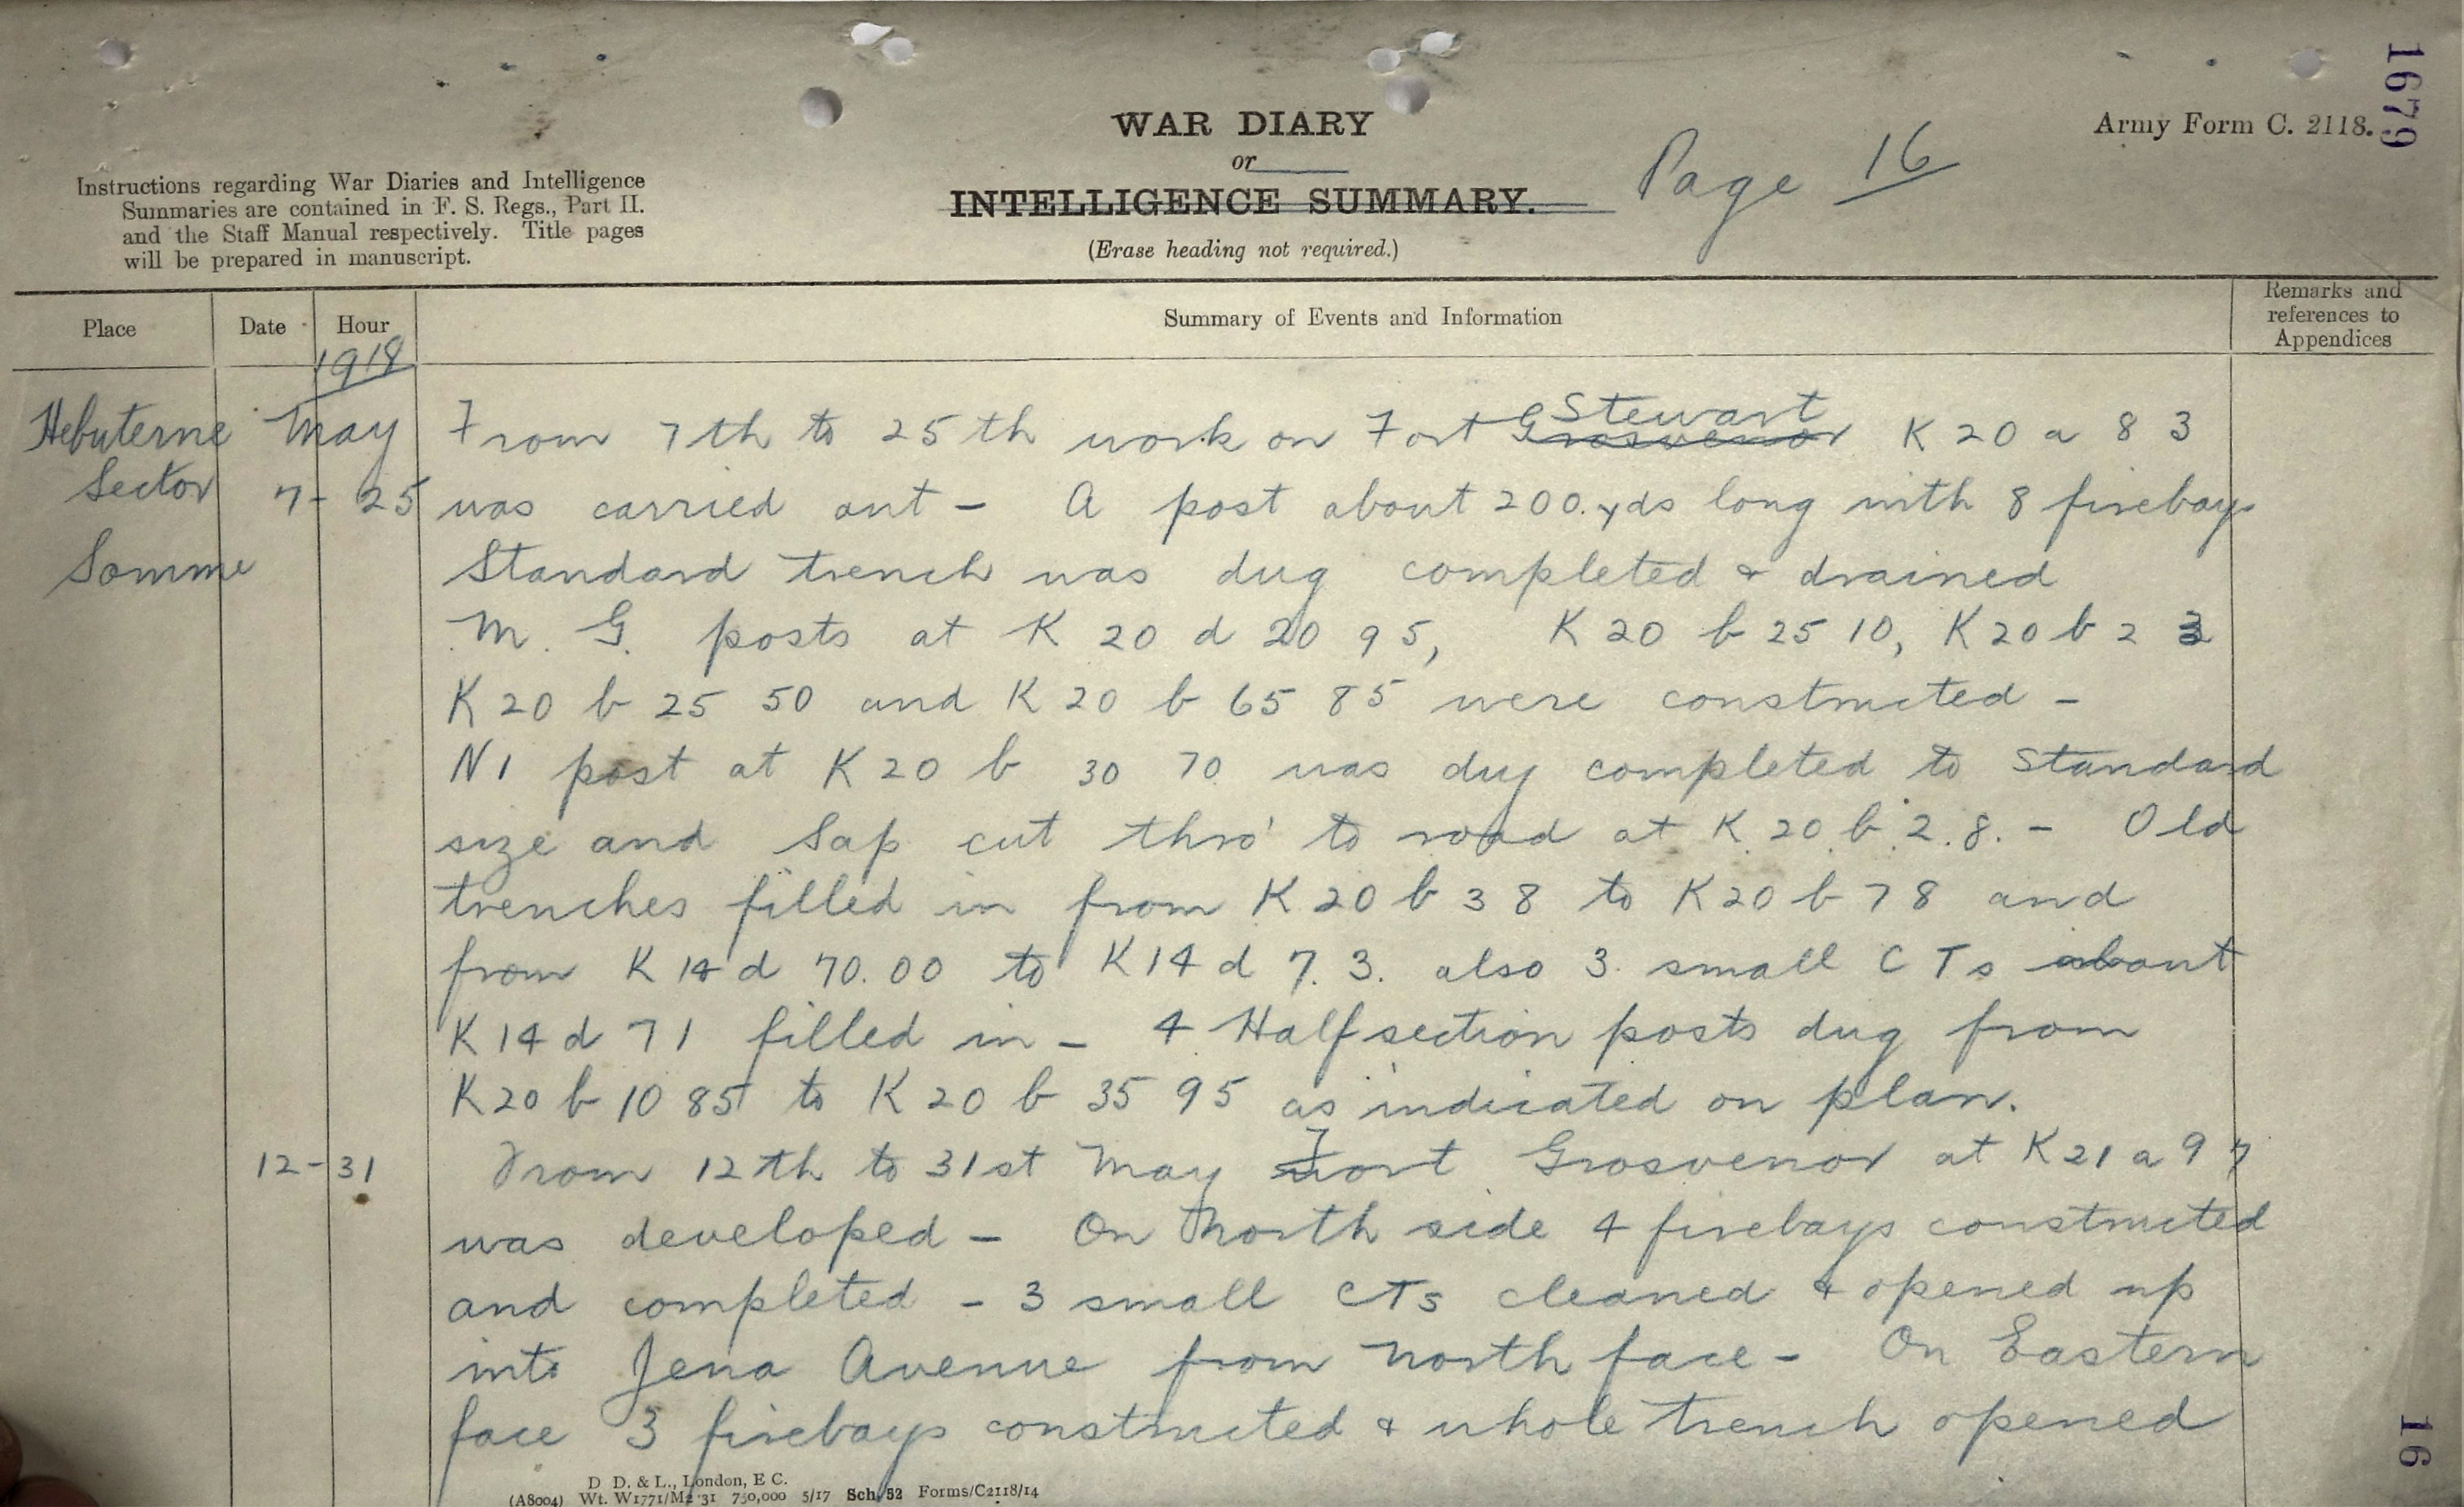 1679
WAR DIARY
or
INTELLIGENCE SUMMARY.
(Erase heading not required.)
Page 16
Army Form C. 2118.
Instructions regarding War Diaries and Intelligence
Summaries are contained in F. S. Regs., Part II.
and the Staff Manual respectively. Title pages
will be prepared in manuscript.
Place Date Hour Summary of Events and Information Remarks and references to Appendices
1918
Hebuterne May From 7th to 25th work on Fort Grosvenor Stewart K 20 a 8 3
Sector 7 - 25 was carried out - A post about 200.yds long with 8 firebays
Somme Standard trench was dug completed & drained
M. G. posts at K 20 d 20 95, K 20 b 25 10, K 20 b 2 3
K 20 b 25 50 and K 20 b 65 85 were constructed -
N1 post at K 20 b 30 70 was dug completed to standard
size and Sap cut thro' to road at K.20.b.2.8. - Old
trenches filled in from K 20 b 3 8 to K 20 b 7 8 and
from K 14 d 70.00 to K 14 d 7.3. also 3 small C Ts about
K 14 d 7 1 filled in - 4 Half section posts dug from
K 20 b 10 85 to K 20 b 35 95 as indicated on plan.
12 - 31 From 12th to 31st May Fort Grosvenor at K 21 a 9 7
was developed - On North side 4 firebays constructed
and completed - 3 small CTs cleaned & opened up
into Jena Avenue from North face - On Eastern
face 3 firebays constructed & whole trench opened
D. D. & L., London, E C.
(A8004) Wt. W1771/M2 31 750,000 5/17 Sch. 52 Forms/C2118/14
16